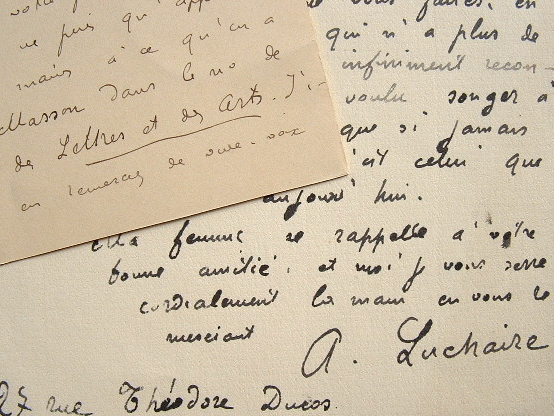 ne puis qu'
mais à ce qu'on a
Masson dans le no de
des Lettres et des Arts. J'i-
en remercier de vive-voix
vous faites, en
qui n'a plus de
infiniment recon-
voulu songer à
que si jamais
c'est celui que
aujourd'hui.
Ma femme se rappelle à votre
bonne amitié, et moi je vous serre
cordialement la main en vous re
merciant
A. Luchaire
27 rue Théodore Ducos.